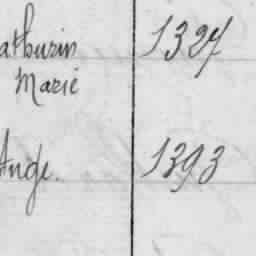 athurin 1327
Marie
Ange. 1393